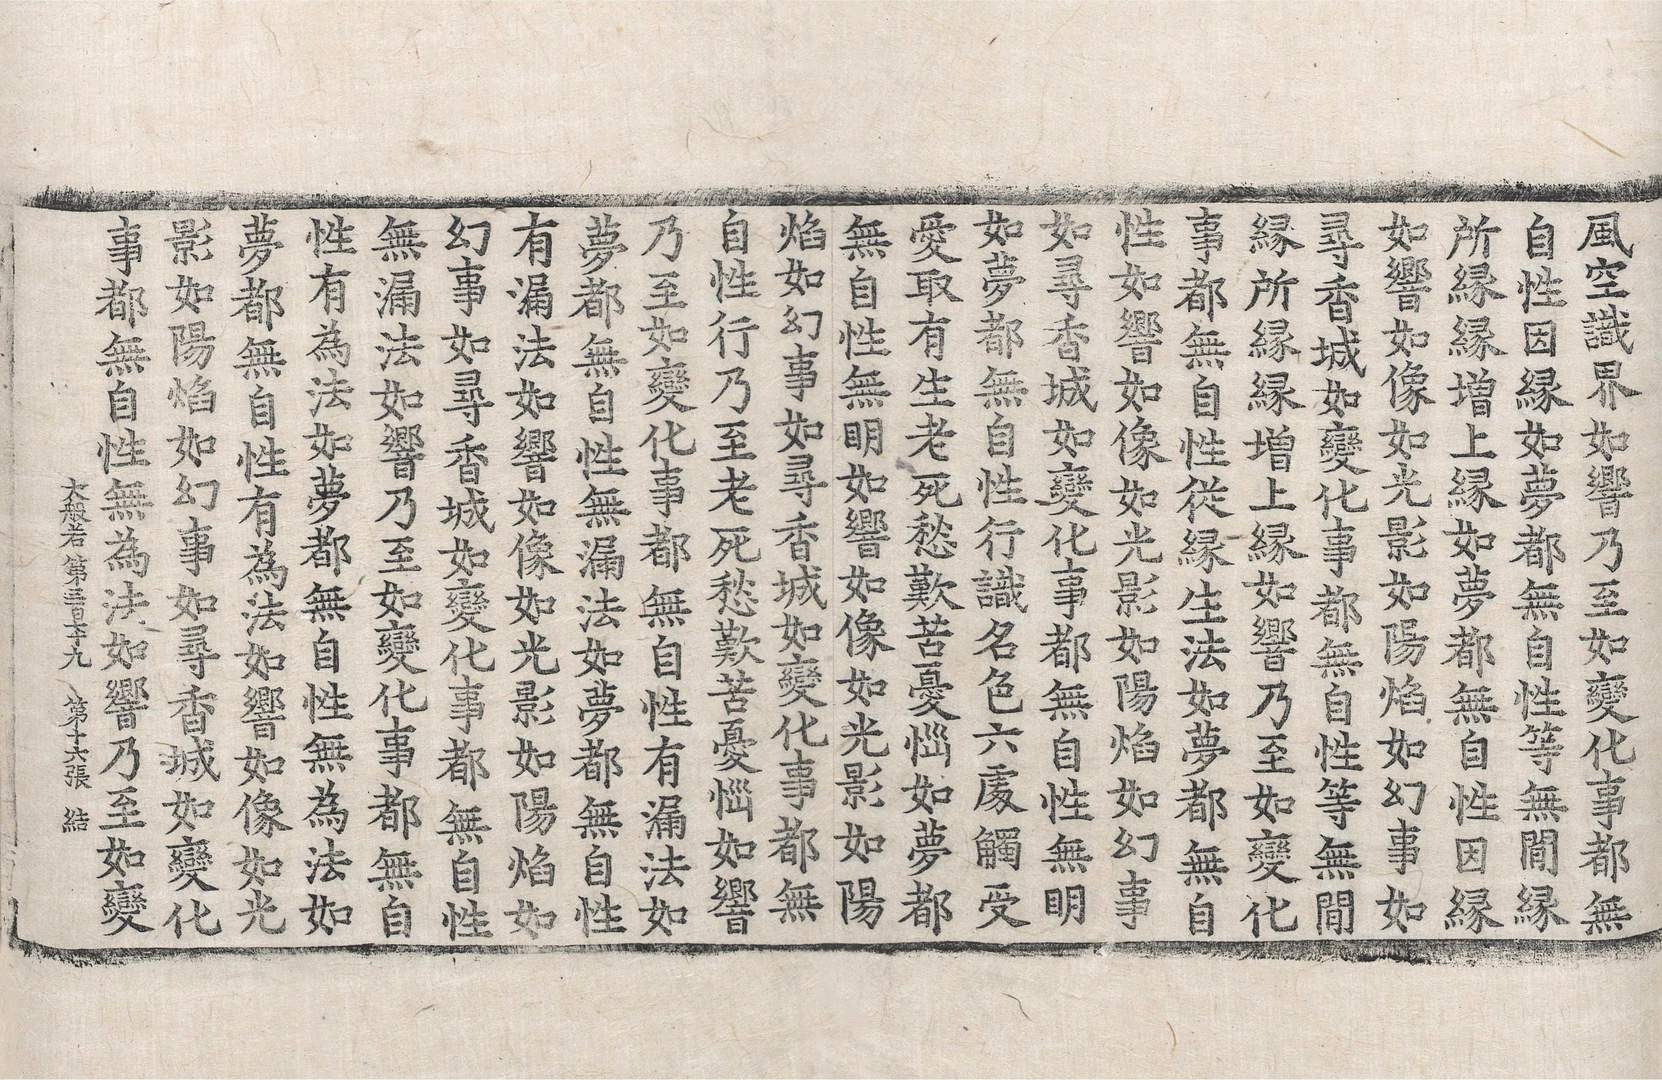 風空識界如響乃至如變化事都無
自性因縁如夢都無自性等無間縁
所縁縁增上縁如夢都無自性因縁
如響如像如光影如陽焰如幻事如
尋香城如變化事都無自性等無間
縁所縁縁增上縁如響乃至如變化
事都無自性從縁生法如夢都無自
性如響如像如光影如陽焰如幻事
如尋香城如變化事都無自性無明
如夢都無自性行識名色六處觸受
愛取有生老死愁歎苦憂惱如夢都
無自性無明如響如像如光影如陽
焰如幻事如尋香城如變化事都無
自性行乃至老死愁歎苦憂惱如響
乃至如變化事都無自性有漏法如
夢都無自性無漏法如夢都無自性
有漏法如響如像如光影如陽焰如
幻事如尋香城如變化事都無自性
無漏法如響乃至如變化事都無自
性有為法如夢都無自性無為法如
夢都無自性有為法如響如像如光
影如陽焰如幻事如尋香城如變化
事都無自性無為法如響乃至如變
大般若 第三百十九 第十六張 結